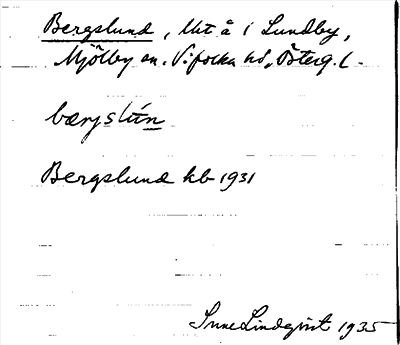 Bergslund, lht å i Lundby,
Mjölby sn. Vifolka hd, Österg. l.
bærjslún
Bergslund kb 1931
Sune Lindqvist 1935